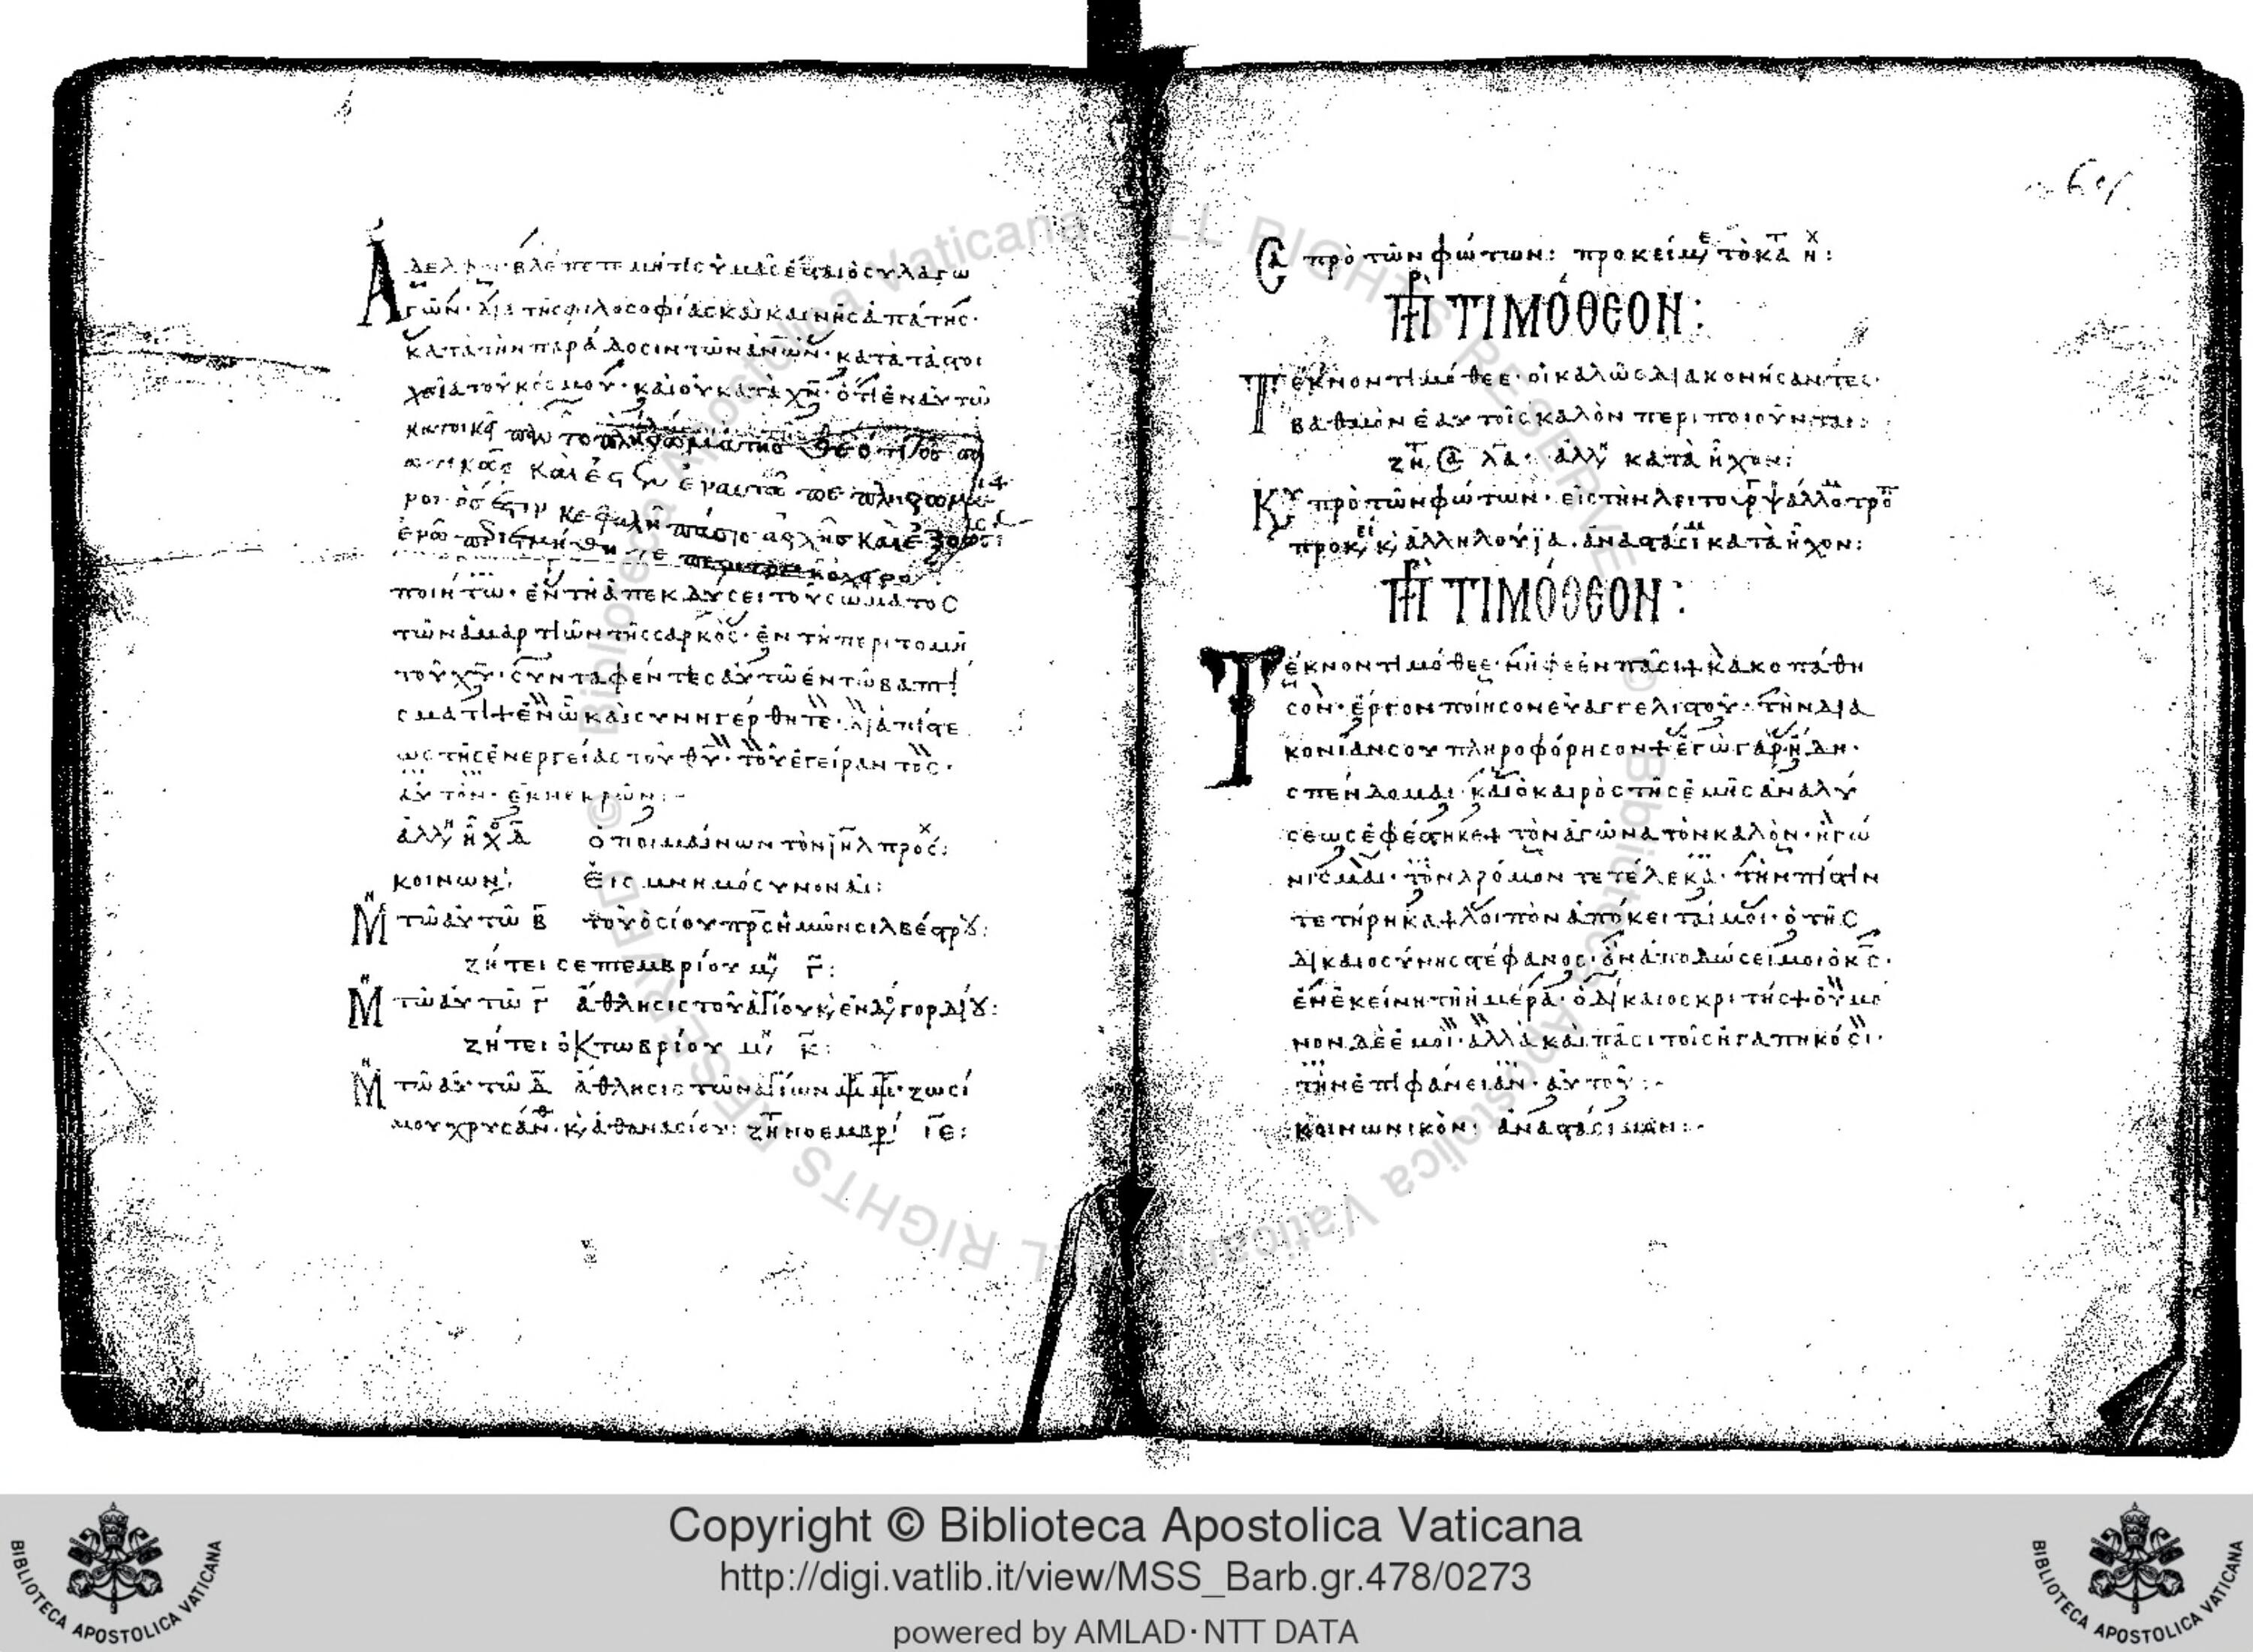 Ἀδελφοί· βλέπετε μή τις ὑμᾶς ἔσται ὁ συλαγω
γῶν· διὰ τῆς φιλοσοφίας καὶ καινῆς ἀπάτης·
κατὰ τὴν παράδοσιν τῶν ἀν̅ω̅ν· κατὰ τὰ στοι
χεῖα τοῦ κόσμου· καὶ οὐ κατὰ χ̅ν· ὅτι ἐν αὐτῶ
κατοικεῖ πᾶν τὸ πλήρωμα τῆς θεότητος σω
ματικῶς καὶ ἐστὲ ἐν αυτῶ πεπληρωμέ
νοι ὅς ἐστιν κεφαλὴ πάσης ἀρχῆς καὶ ἐξουσί
ποιήτω· ἐν τῆ ἀπεκδύσει τοῦ σώματος
τῶν ἁμαρτιῶν τῆς σαρκὸς· ἐν τῆ περιτομῆ
τοῦ χ̅υ· συνταφέντες αὐτῶ ἐν τῶ βαπτί
σματι + ἐν ὧ καὶ συνηγέρθητε· διὰ πίστε
ως τῆς ἐνεργείας τοῦ θ̅υ· τοῦ ἐγείραντος·
αὐτὸν· ἐκ νεκρῶν:-
ἀλλη ἦχ α̅ ὁ ποιμαίνων τὸν ι̅η̅λ προς:
κοινων: Εἰς μνημόσυνον αι:
Μη τῶ αὐτῶ β̅ τοῦ ὁσίου π̅ρ̅ς ἡμῶν σιλβέστρου:
ζήτει σεπτεμβρίου μη γ̅:
Μη τῶ αὐτῶ γ̅ ἄθλησις τοῦ ἁγίου κ, ἐνδο γορδίου:
ζήτει ὀκτωβρίου μη κ̅:
Μη τῶ αὐτῶ δ̅ ἄθλησις τῶν ἁγίων ζωσί
μου χρυσάνθ· κ, ἀθανασίου: ζητ νοεμβρι ι̅ε:
Σα πρὸ τῶν φώτων: προκείμε, τὸ κατ ηχ:
Πρ ΤΙΜΌΘΕΟΝ:
Τέκνον τιμόθεε· οἱ καλῶς διακονήσαντες·
βαθμὸν ἑαυτοῖς καλὸν περιποιοῦνται:
ζητ Σα λα· ἀλλη κατὰ ἦχον:
Κυ πρὸ τῶν φώτων· εἰς τὴν λειτουργ ψάλλο τροπ
προκει, κ, ἀλληλούϊα. ἀναστάσι κατὰ ἦχον:
Πρ ΤΙΜΌΘΕΟΝ:
Τέκνον τιμόθεε· νῆφε ἐν πᾶσι + κακοπάθη
σον· ἔργον ποίησον εὐαγγελιστοῦ· τὴν δια
κονίαν σου πληροφόρησον + ἐγὼ γὰρ ἤδη·
σπένδομαι· καὶ ὁ καιρὸς τῆς ἐμῆς ἀναλύ
σεως ἐφέστηκε + τὸν ἀγῶνα τὸν καλὸν· ἠγώ
νισμαι· τὸν δρόμον τετέλεκα· τὴν πίστιν
τετήρηκα + λοιπὸν ἀπόκειταί μοι· ὁ τῆς
δικαιοσύνης στέφανος· ὃν ἀποδώσει μοι ὁ κ̅ς·
ἐν ἐκείνη τῆ ἡμέρα· ὁ δίκαιος κριτής + οὐ μό
νον δὲ ἐμοὶ· ἀλλὰ καὶ πᾶσι τοῖς ἠγαπηκόσι·
τὴν ἐπιφάνειαν· αὐτοῦ:-
κοινωνικὸν: ἀναστάσιμον:-
Copyright © Biblioteca Apostolica Vaticana
http://digi.vatlib.it/view/MSS_Barb.gr.478/0273
powered by AMLAD·NTT DATA
BIBLIOTECA APOSTOLICA VATICANA
BIBLIOTECA APOSTOLICA VATICANA